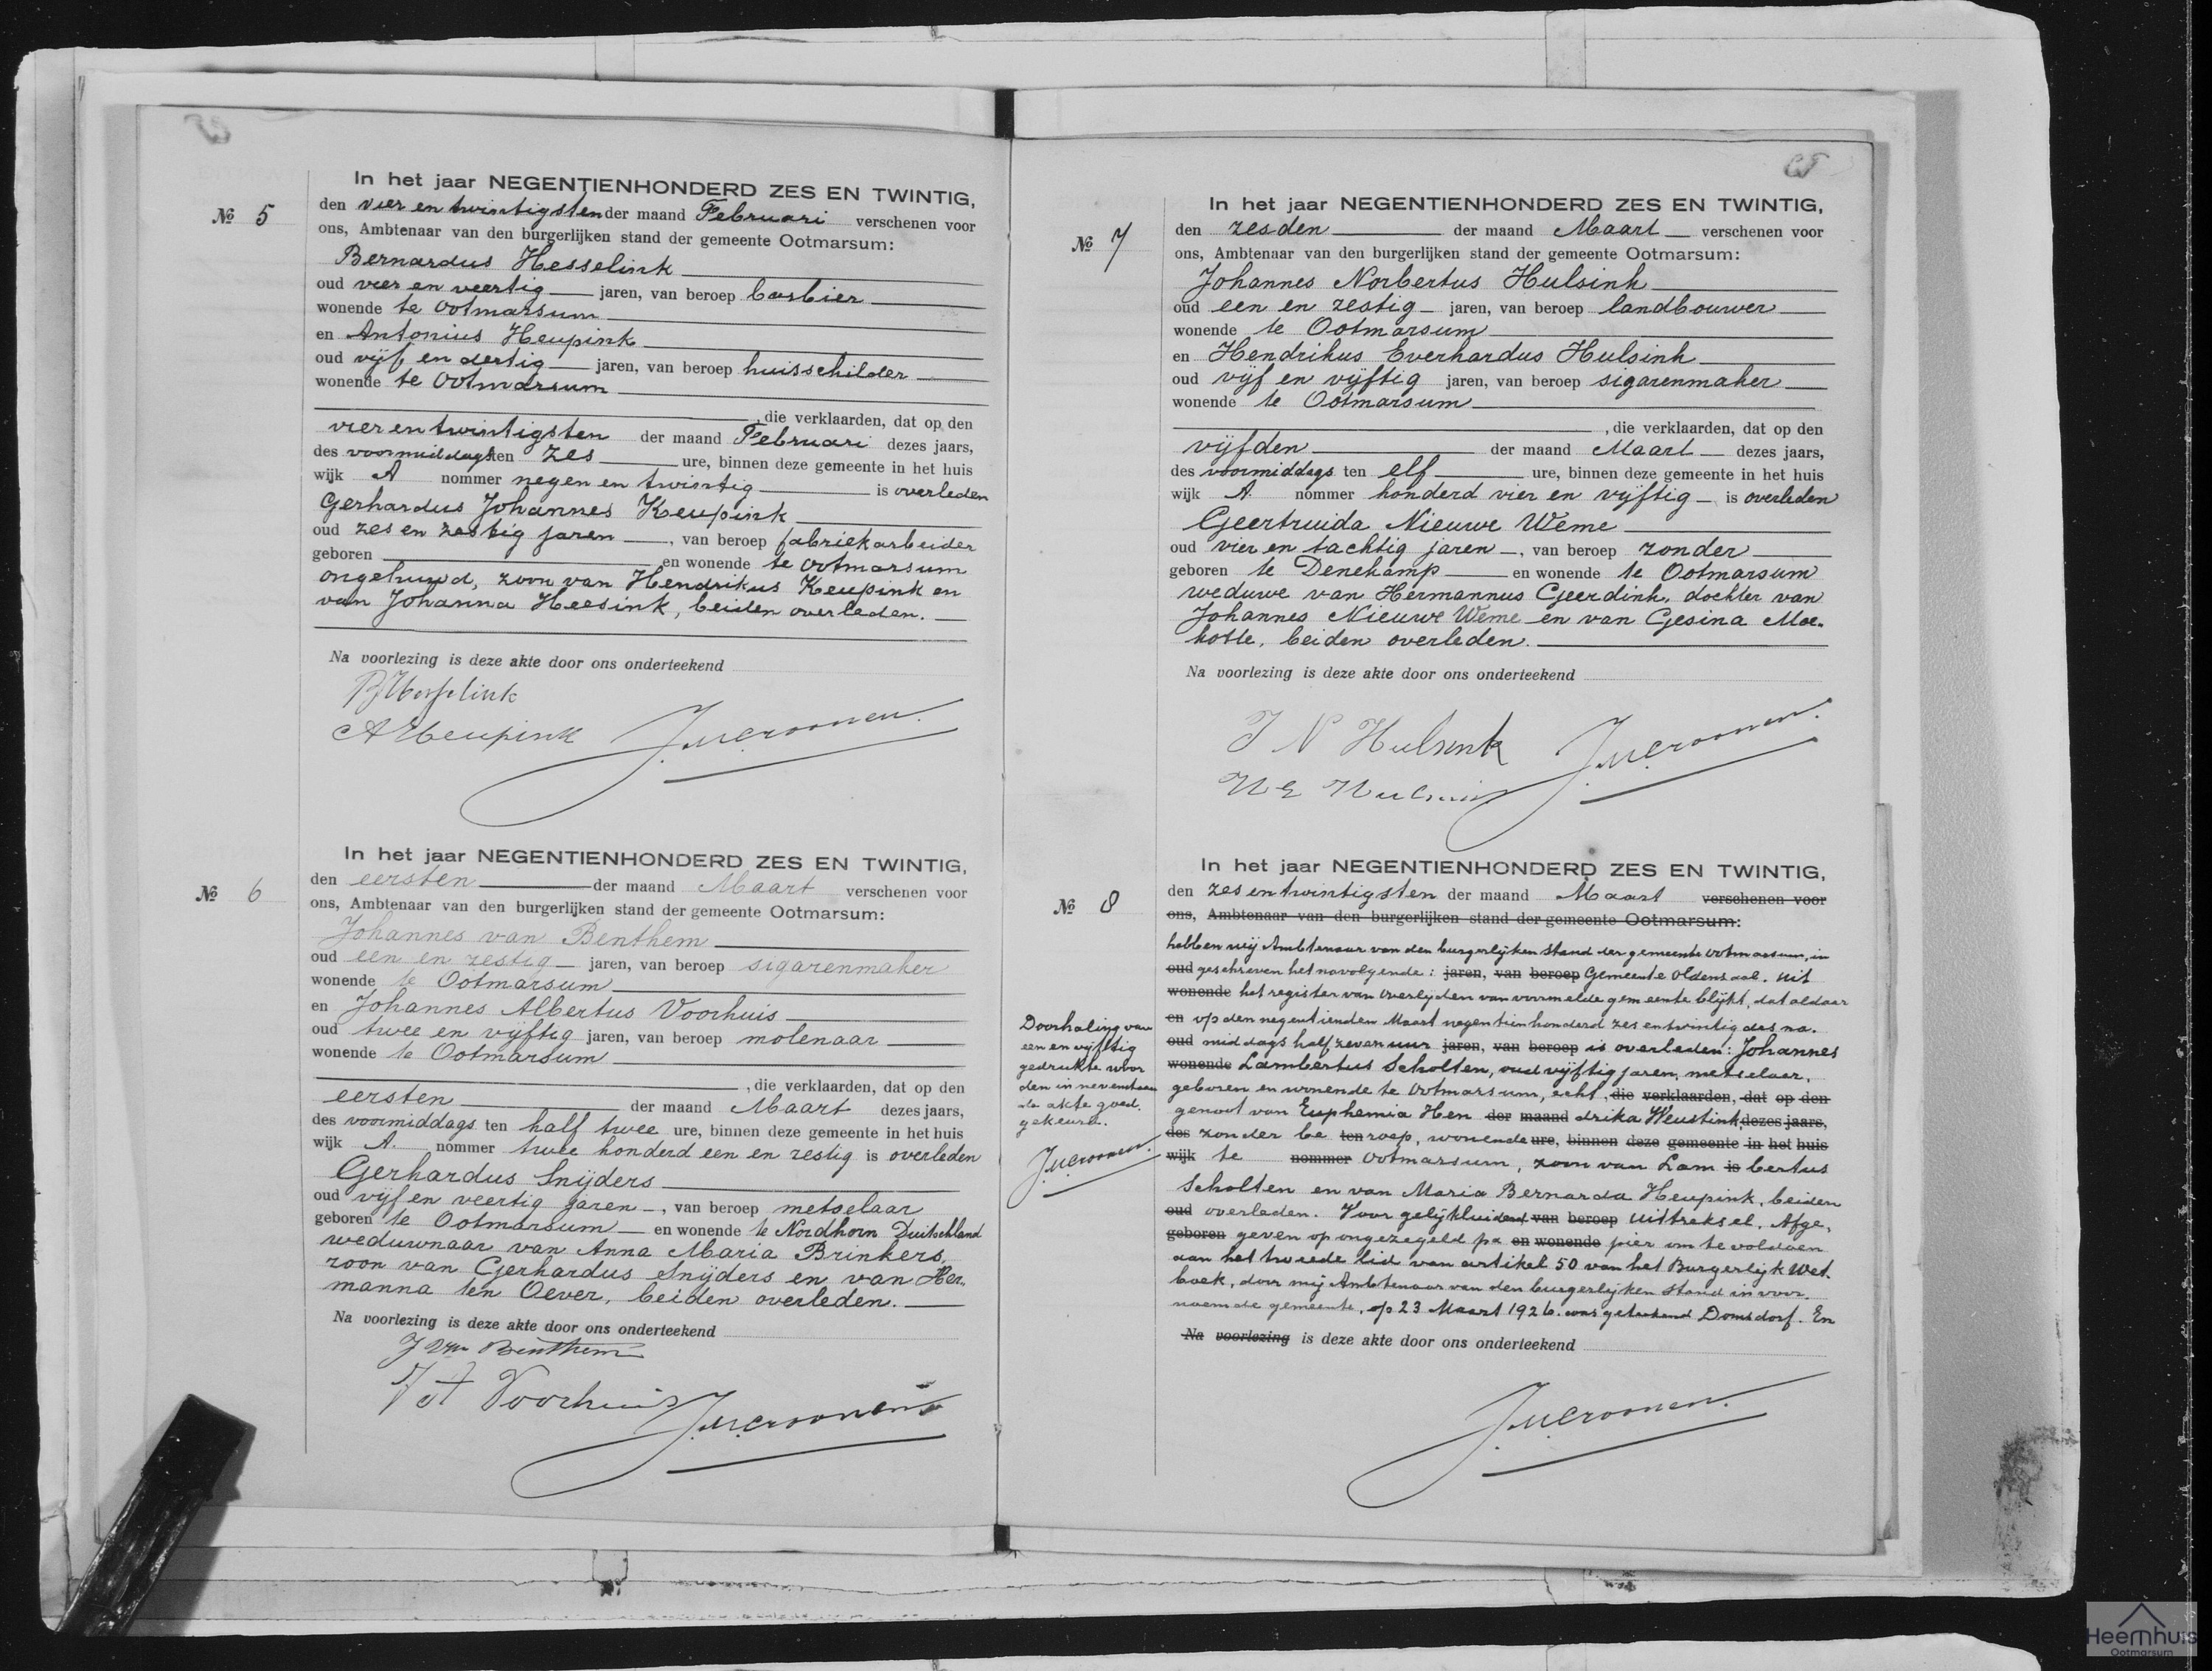 In het jaar NEGENTIENHONDERD ZES EN TWINTIG,
№ 5
den vier en twintigsten der maand Februari verschenen voor
ons, Ambtenaar van den burgerlijken stand der gemeente Ootmarsum:
Bernardus Hesselink
oud vier en veertig jaren, van beroep barbier
wonende te Ootmarsum
en Antonius Heupink
oud vijf en dertig jaren, van beroep huisschilder
wonende te Ootmarsum
, die verklaarden, dat op den
vier en twintigsten der maand Februari dezes jaars,
des voormiddags ten zes ure, binnen deze gemeente in het huis
wijk A nommer negen en twintig is overleden
Gerhardus Johannes Keupink
oud zes en zestig jaren, van beroep fabriekarbeider
geboren en wonende te Ootmarsum
ongehuwd, zoon van Hendrikus Keupink en
van Johanna Heesink, beiden overleden.
Na voorlezing is deze akte door ons onderteekend
B Hesselink
A Heupink
In het jaar NEGENTIENHONDERD ZES EN TWINTIG,
№ 6
den eersten der maand Maart verschenen voor
ons, Ambtenaar van den burgerlijken stand der gemeente Ootmarsum:
Johannes van Benthem
oud een en zestig jaren, van beroep sigarenmaker
wonende te Ootmarsum
en Johannes Albertus Voorhuis
oud twee en vijftig jaren, van beroep molenaar
wonende te Ootmarsum
, die verklaarden, dat op den
eersten der maand Maart dezes jaars,
des voormiddags ten half twee ure, binnen deze gemeente in het huis
wijk A. nommer twee honderd een en zestig is overleden
Gerhardus Snijders
oud vijf en veertig jaren, van beroep metselaar
geboren te Ootmarsum en wonende te Nordhorn Duitschland
weduwnaar van Anna Maria Brinkers,
zoon van Gerhardus Snijders en van Her,
manna ten Oever, beiden overleden.
Na voorlezing is deze akte door ons onderteekend
J van Benthem
J A Voorhuis
In het jaar NEGENTIENHONDERD ZES EN TWINTIG,
№ 7
den zesden der maand Maart verschenen voor
ons, Ambtenaar van den burgerlijken stand der gemeente Ootmarsum:
Johannes Norbertus Hulsink
oud een en zestig jaren, van beroep landbouwer
wonende te Ootmarsum
en Hendrikus Everhardus Hulsink
oud vijf en vijftig jaren, van beroep sigarenmaker
wonende te Ootmarsum
, die verklaarden, dat op den
vijfden der maand Maart dezes jaars,
des voormiddags ten elf ure, binnen deze gemeente in het huis
wijk A. nommer honderd vier en vijftig is overleden
Geertruida Nieuwe Weme
oud vier en tachtig jaren, van beroep zonder
geboren te Denekamp en wonende te Ootmarsum
weduwe van Hermannus Geerdink, dochter van
Johannes Nieuwe Weme en van Gesina Moe-
kotte, beiden overleden.
Na voorlezing is deze akte door ons onderteekend
J N Hulsink
H E Hulsink
In het jaar NEGENTIENHONDERD ZES EN TWINTIG,
№ 8
den zes en twintigsten der maand Maart verschenen voor
ons, Ambtenaar van den burgerlijken stand der gemeente Ootmarsum:
hebben wij Ambtenaar van den burgerlijken stand der gemeente Ootmarsum, in
oud geschreven het navolgende: jaren, van beroep Gemeente Oldenzaal. Uit
wonende het register van Overlijden van voormelde gemeente blijkt, dat aldaar
en op den negentienden Maart negentienhonderd zes en twintig des na.
oud middags half zeven uur jaren, van beroep is overleden: Johannes
wonende Lambertus Scholten, oud vijftig jaren, metselaar,
geboren en wonende te Ootmarsum, echt, die verklaarden, dat op den
genoot van Euphemia Hen der maand drika Weustink, dezes jaars,
des zonder be ten roep, wonende ure, binnen deze gemeente in het huis
wijk te nommer Ootmarsum, zoon van Lam is bertus
Scholten en van Maria Bernarda Heupink, beiden
oud overleden. Voor gelijkluidend van beroep uittreksel. Afge,
geboren geven op ongezegeld pa en wonende pier om te voldoen
aan het tweede lid van artikel 50 van het Burgerlijk Wet.
boek, door mij Ambtenaar van den burgerlijken stand in voor.
noemde gemeente, op 23 Maart 1926. was geteekend Domsdorf. En
Na voorlezing is deze akte door ons onderteekend
Doorhaling van
een en vijftig
gedrukte woor
den in nevenstaan
de akte goed.
gekeurd.
Heemhuis
Ootmarsum